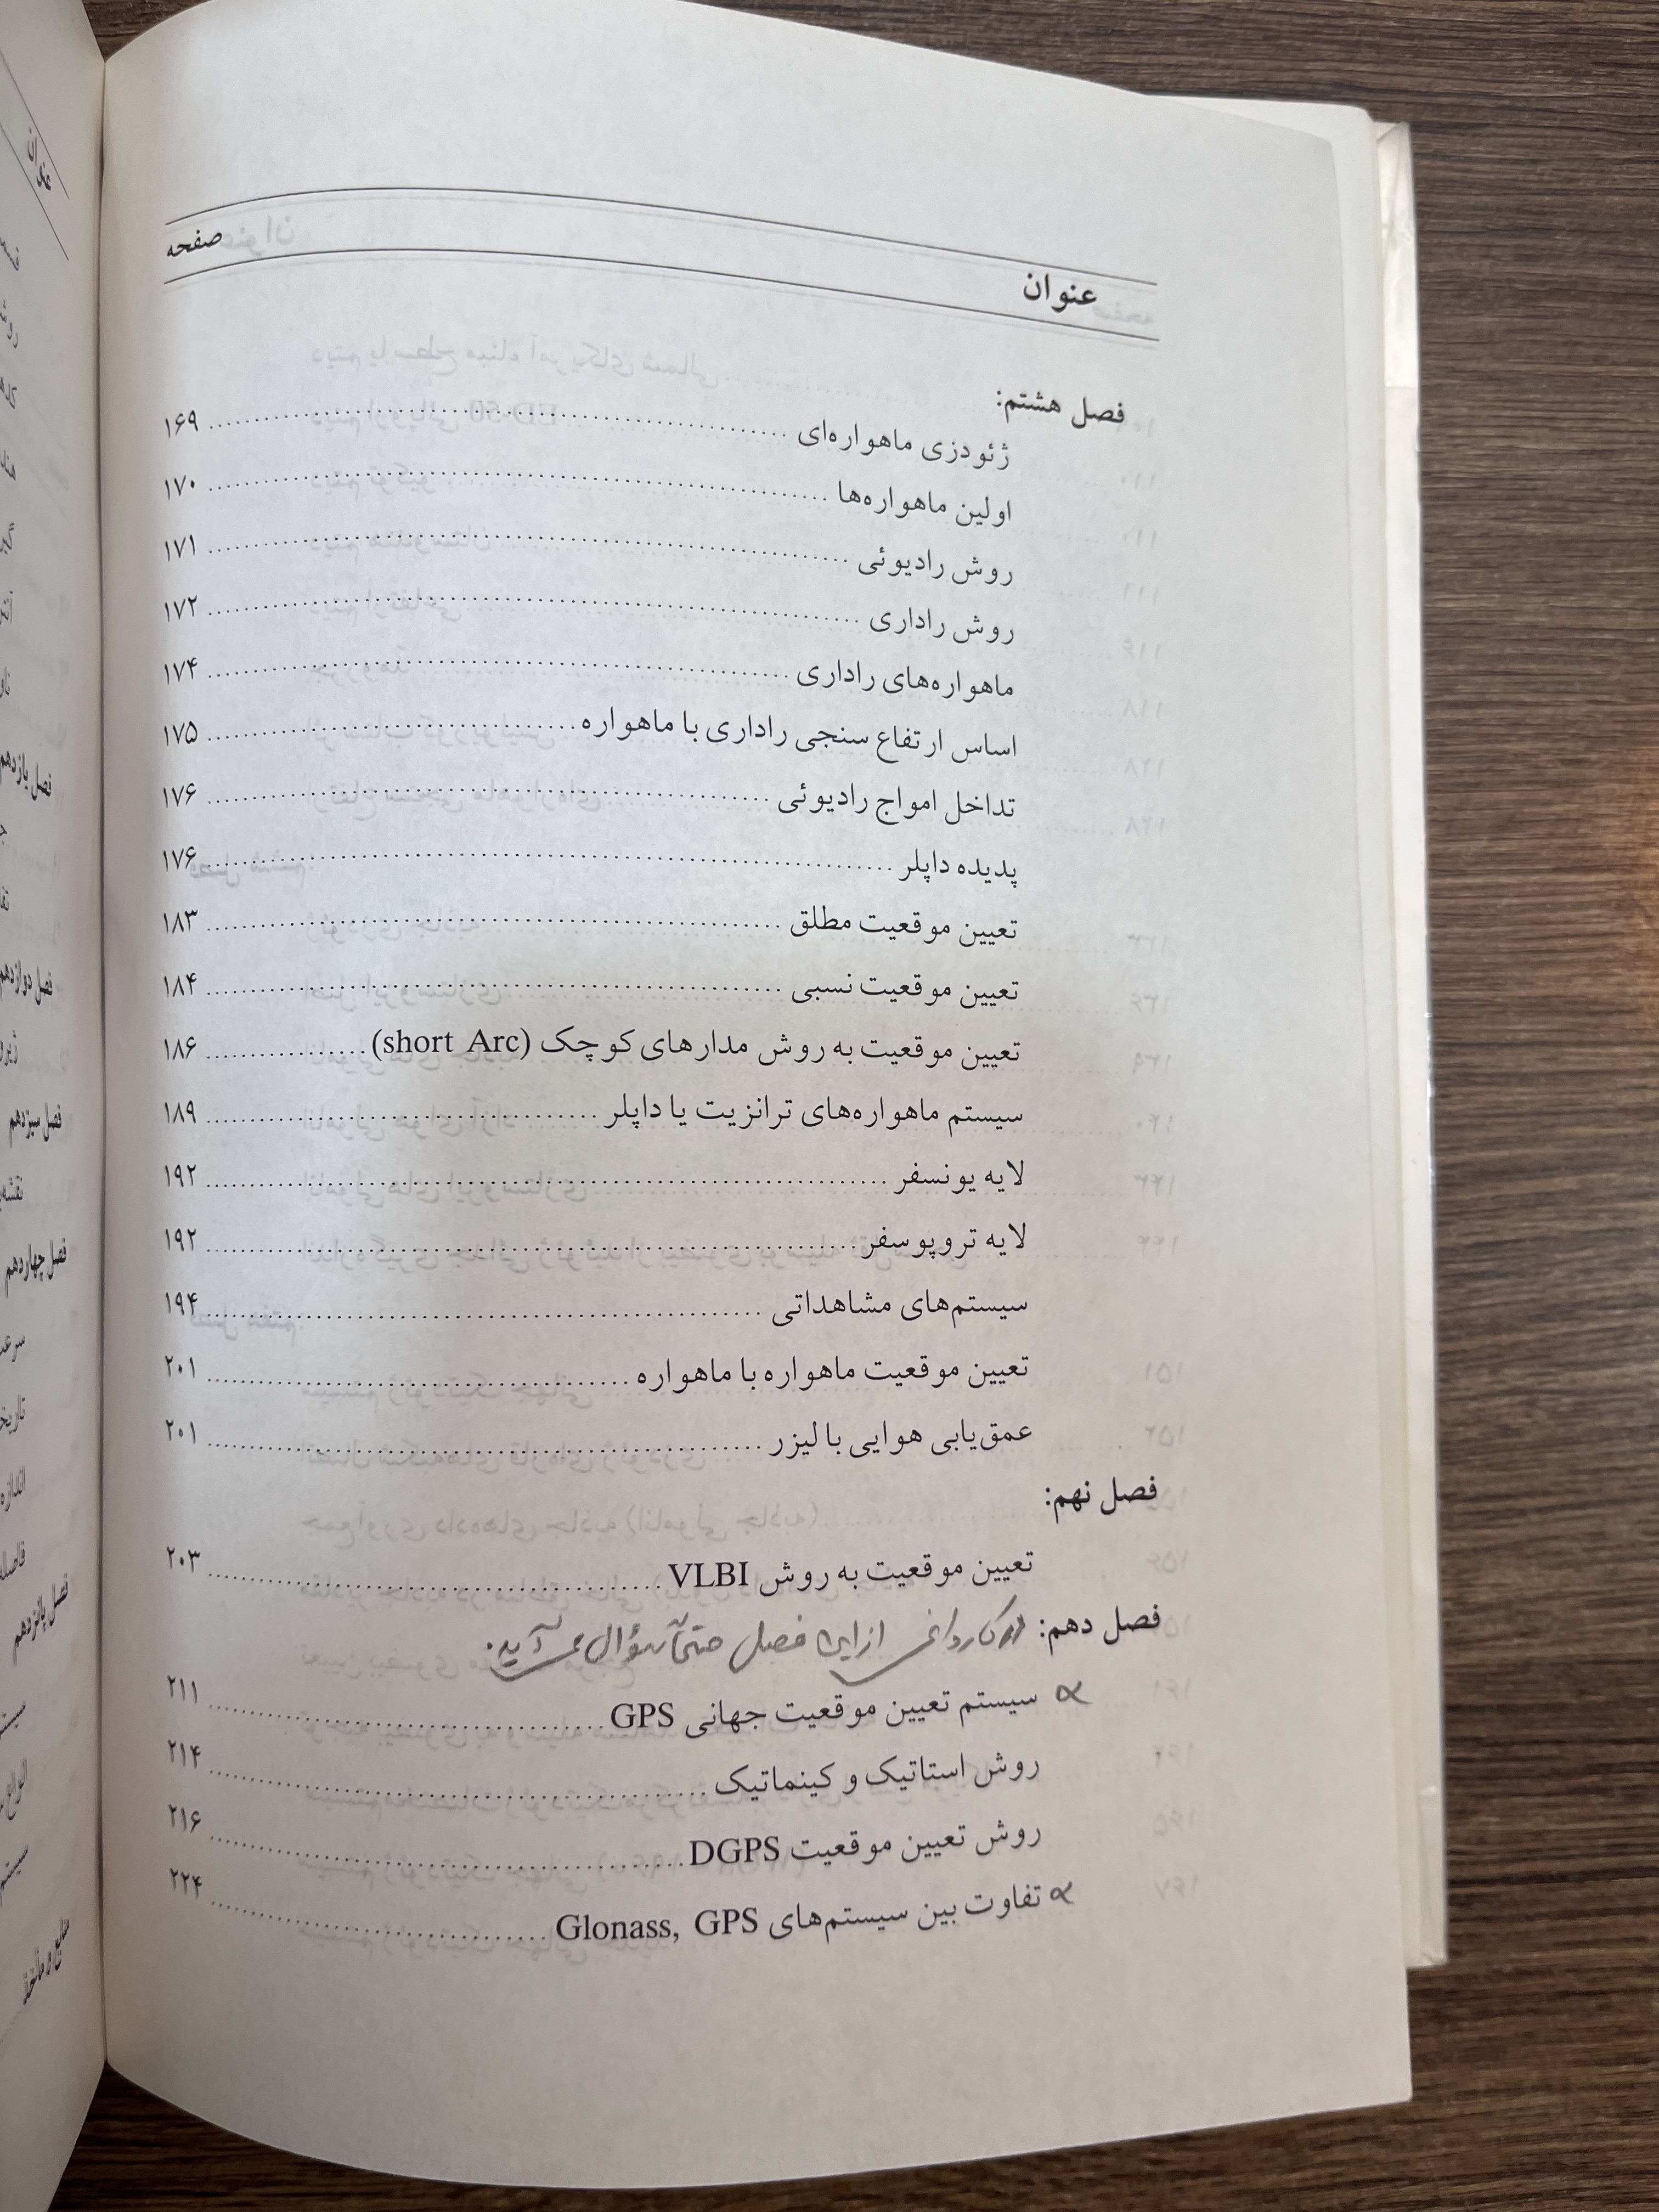 عنوان صفحه
فصل هشتم:
ژئودزی ماهواره‌ای ........ ۱۶۹
اولین ماهواره‌ها ........ ۱۷۰
روش رادیوئی ........ ۱۷۱
روش راداری ........ ۱۷۲
ماهواره‌های راداری ........ ۱۷۴
اساس ارتفاع سنجی راداری با ماهواره ........ ۱۷۵
تداخل امواج رادیوئی ........ ۱۷۶
پدیده داپلر ........ ۱۷۶
تعیین موقعیت مطلق ........ ۱۸۳
تعیین موقعیت نسبی ........ ۱۸۴
تعیین موقعیت به روش مدارهای کوچک (short Arc) ........ ۱۸۶
سیستم ماهواره‌های ترانزیت یا داپلر ........ ۱۸۹
لایه یونسفر ........ ۱۹۲
لایه تروپوسفر ........ ۱۹۲
سیستم‌های مشاهداتی ........ ۱۹۴
تعیین موقعیت ماهواره با ماهواره ........ ۲۰۱
عمق‌یابی هوایی با لیزر ........ ۲۰۱
فصل نهم:
تعیین موقعیت به روش VLBI ........ ۲۰۳
فصل دهم: از این فصل حتماً سؤال می آید.
∝ سیستم تعیین موقعیت جهانی GPS ........ ۲۱۱
روش استاتیک و کینماتیک ........ ۲۱۴
روش تعیین موقعیت DGPS ........ ۲۱۶
∝ تفاوت بین سیستم‌های Glonass, GPS ........ ۲۲۴
فصل یازدهم
فصل دوازدهم
فصل سیزدهم
فصل چهاردهم
فصل پانزدهم